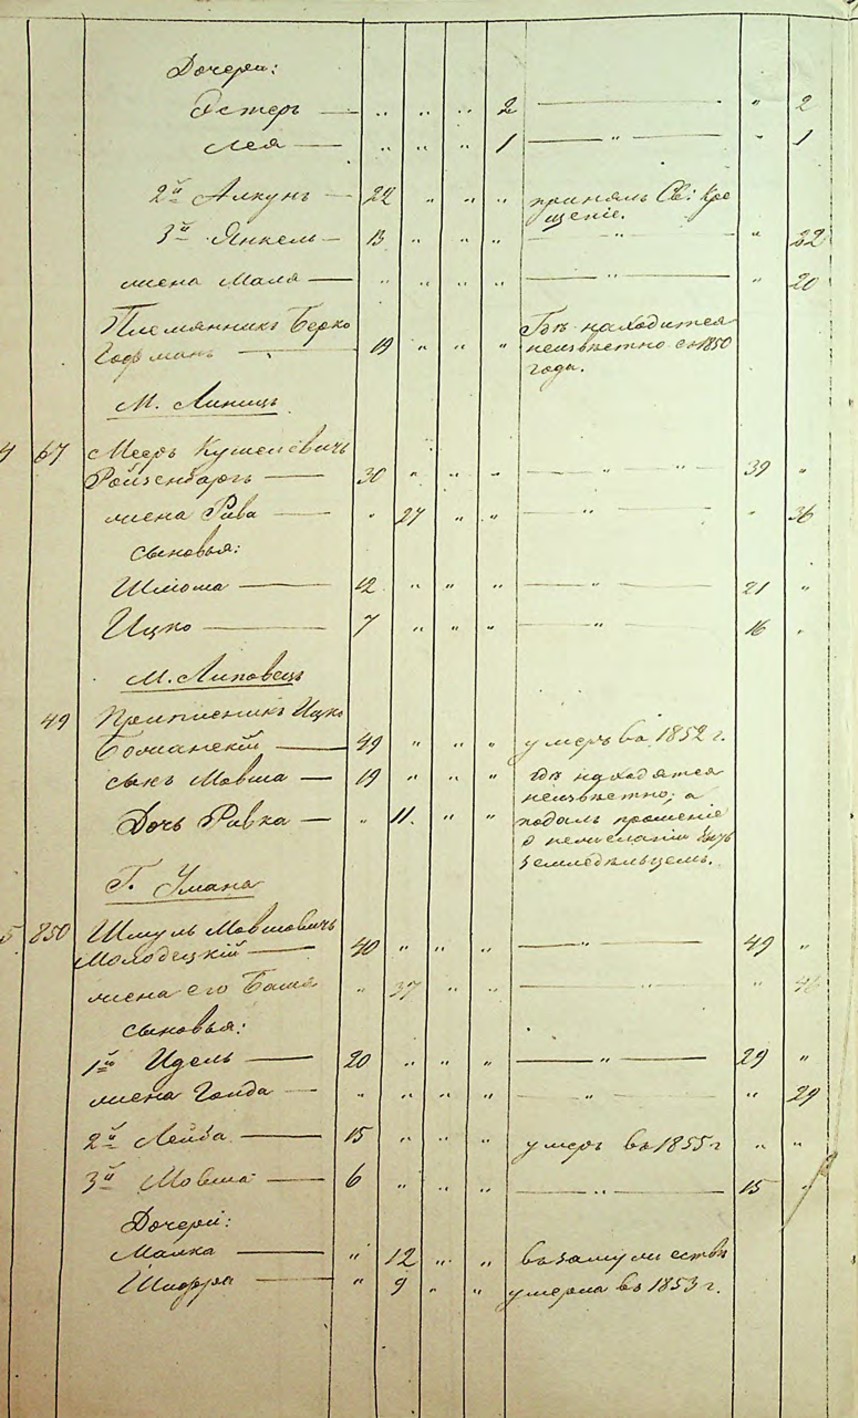 Дочери:
Эстеръ — " " " 2 — " 2
Лея — " " " 1 — " — " 1
2й Алкунъ — 22 " " " принялъ Св: Кре
щеніе.
3й Янкель — 13 " " " — " — " 22
жена Маля — " " " " — " — " 20
Племянникъ Берко
Гофманъ — 19 " " " Гдѣ находится
неизвѣстно съ 1850
года.
М. Линицъ
4 67 Мееръ Кушелевичъ
Ройзенбаргъ — 30 " " " — " " — 39 "
жена Рива — " 27 " " — " — " 36
сыновья:
Шліома — 12 " " " — " — 21 "
Ицко — 7 " " " — " — 16 "
М. Липовецъ
49 Приписникъ Ицко
Боманскій — 49 " " " умеръ въ 1852 г.
сынъ Мовша — 19 " " " гдѣ находятся
неизвѣстно; а
Дочь Ривка — " 11. " " подалъ прошеніе
о нежеланіи быть
земледѣльцемъ.
Г. Умана
5 850 Шмуль Мовшовичъ
Молодецкій — 40 " " " — " — 49 "
жена его Бася " 37 " " — " — " 46
сыновья:
1й Идель — 20 " " " — " — 29 "
жена Голда — " " " " — " — " 29
2й Лейба — 15 " " " умеръ въ 1855 г " "
3й Мовша — 6 " " " — " — 15 "
Дочери:
Малка — " 12 " " въ замужествѣ
Шифра — " 9 " " умерла въ 1853 г.